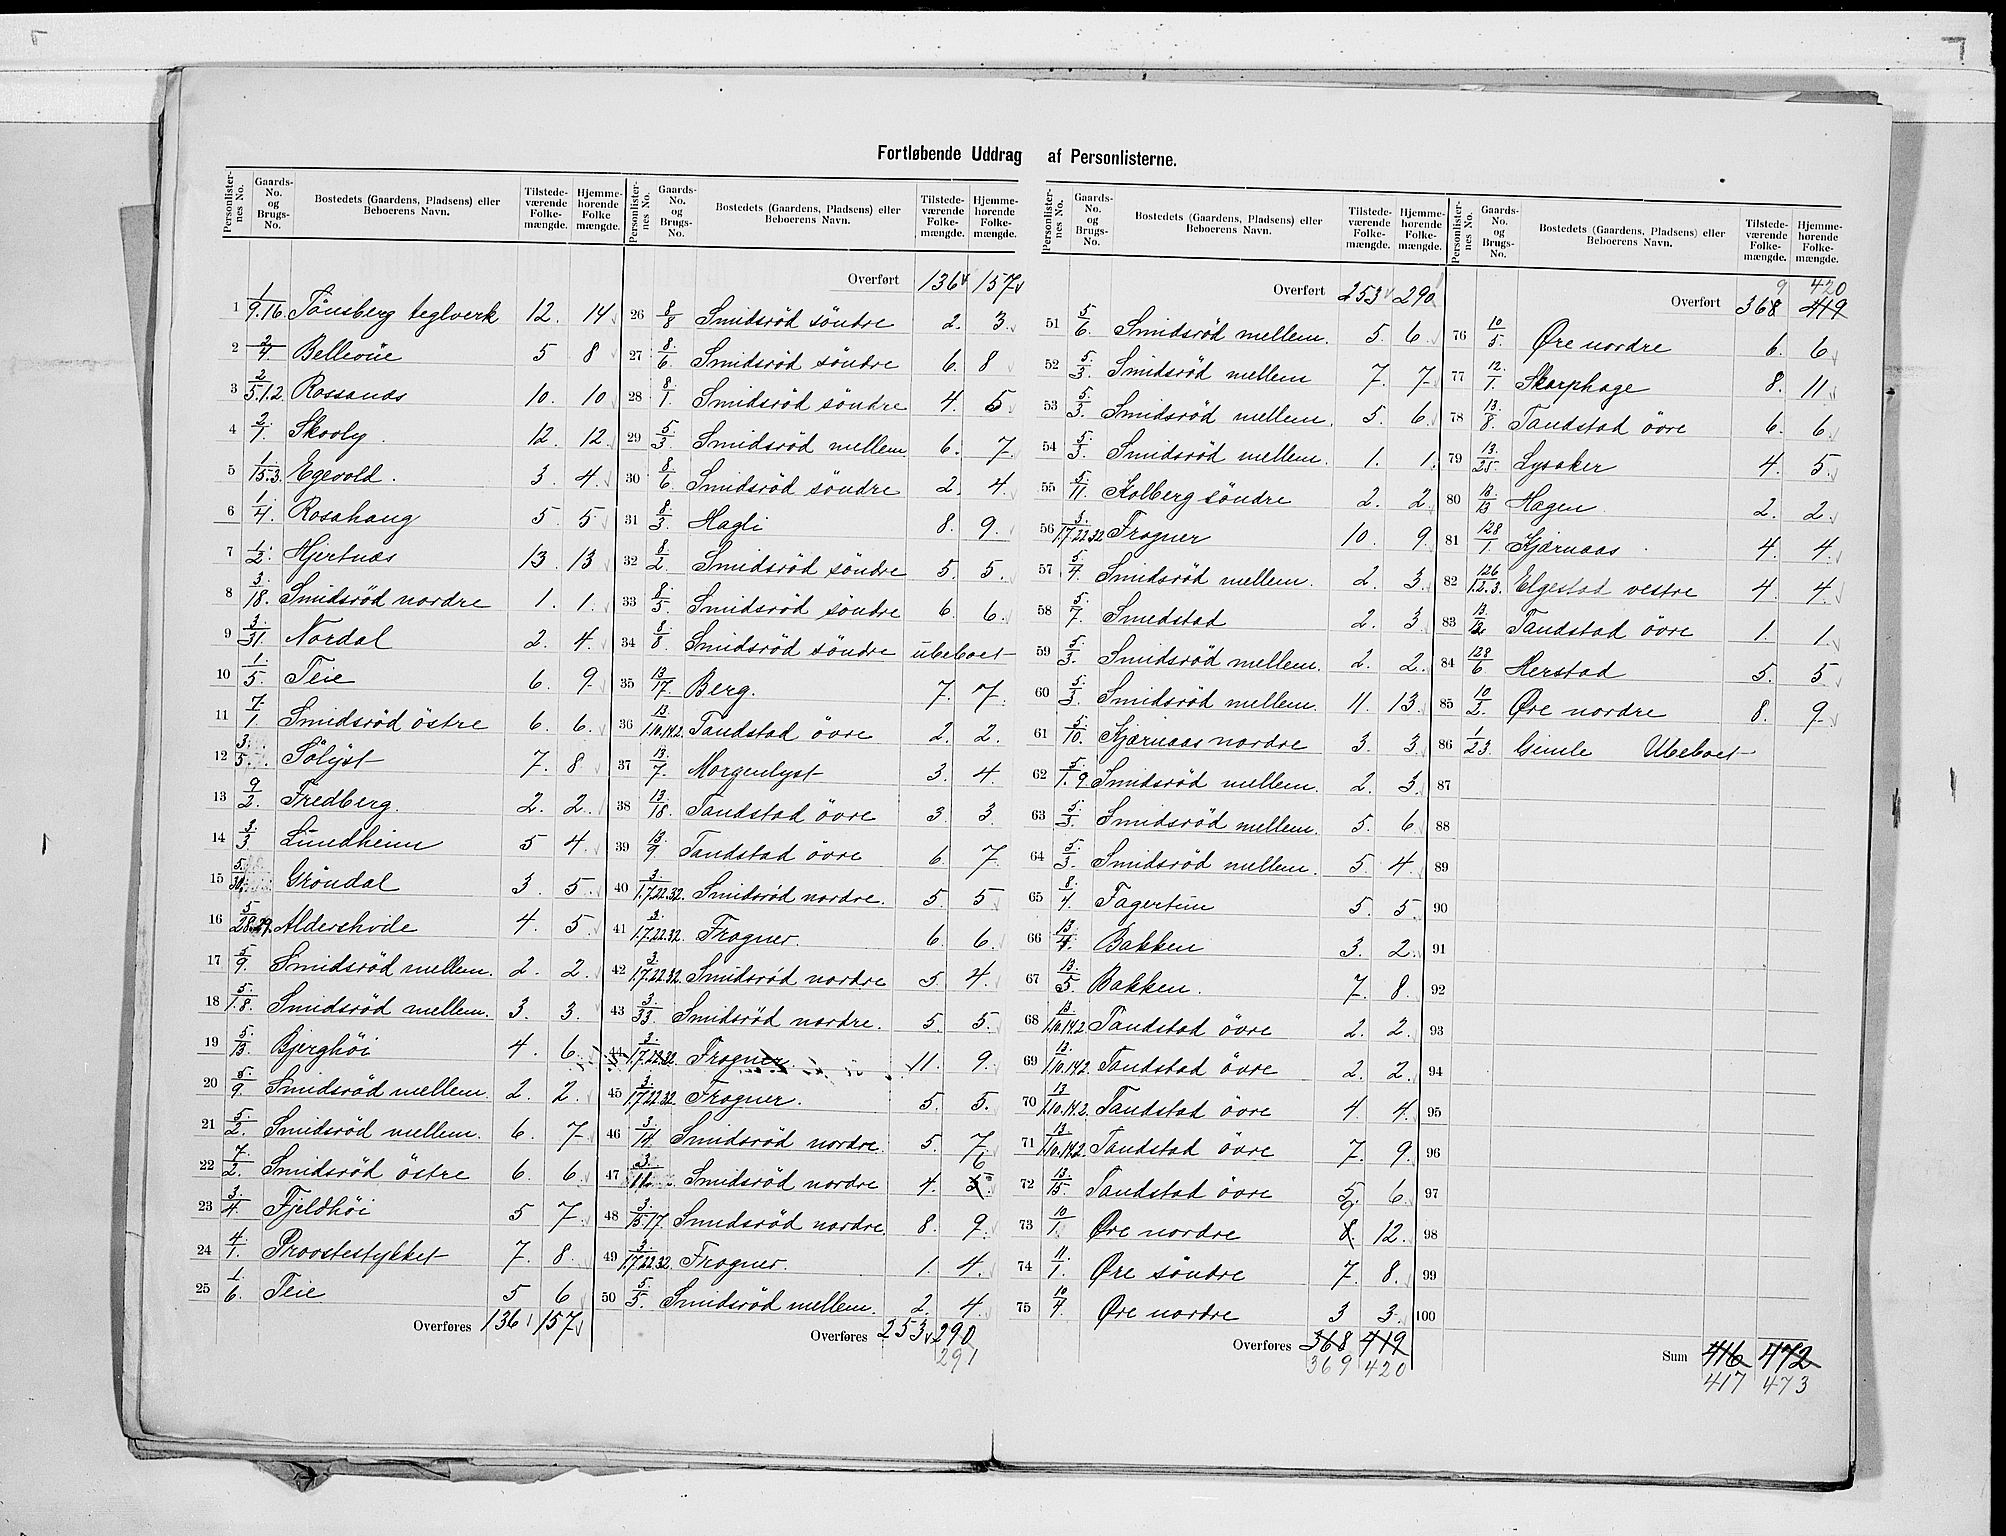 Fortløbende Uddrag af Personlisterne.
Personlister-nes No. Gaards-No. og Brugs-No. Bostedets (Gaardens, Pladsens) eller Beboerens Navn. Tilstede-værende Folke-mængde. Hjemme-hørende Folke mængde.
1 1/9.16. Tönsberg teglverk 12. 14
2 2/4 Bellevüe 5 8
3 2/5.1.2. Rossanæs 10. 10
4 2/1. Skovly. 12. 12.
5 1/15.3. Egevold. 3. 4.
6 1/4. Rosahaug 5. 5
7 1/2. Hjertnæs 13. 13
8 3/18. Smidsröd nordre 1. 1.
9 3/31. Nordal 2. 4.
10 1/5. Teie 6. 9
11 7/1. Smidsröd östre 6. 6.
12 3/5. Sölyst 7. 8
13 9/2. Fredberg. 2. 2.
14 3/3. Lündheim 5 4.
15 5/30. Gröndal 3. 5.
16 5/28.29. Aldershvile 4. 5.
17 5/9. Smidsröd mellem. 2. 2.
18 5/1.8. Smidsröd mellem. 3. 3.
19 5/13. Bjerghöi 4. 6
20 5/9. Smidsröd mellem. 2. 2.
21 5/2. Smidsröd mellem. 6. 7
22 7/2. Smidsröd östre 6. 6
23 3/4. Fjeldhöi 5 7
24 4/1. Provstestykket 7. 8.
25 1/6. Teie 5 6
Overføres 136 157
Personlister-nes No. Gaards-No. og Brugs-No. Bostedets (Gaardens, Pladsens) eller Beboerens Navn. Tilstede-værende Folke-mængde. Hjemme-hørende Folke-mængde.
Overført 136 157
26 8/8 Smidsröd söndre 2. 3.
27 8/6. Smidsröd söndre 6. 8
28 8/1 Smidsröd söndre 4. 5
29 5/3. Smidsröd mellem. 6. 7.
30 8/6. Smidsröd söndre 2. 4.
31 8/3. Hagli 8. 9.
32 8/2. Smidsröd söndre 5. 5.
33 8/5. Smidsröd söndre 6. 6.
34 8/8. Smidsröd söndre übeboet
35 13/17 Berg. 7. 7.
36 13/1.10.14.2. Tandstad övre 2. 2.
37 13/7. Morgenlyst 3. 4.
38 13/18. Tandstad övre 3. 3.
39 13/9 Tandstad övre 6. 7
40 3/1.7.22.32. Smidsröd nordre. 5. 5
41 3/1.7.22.32. Frogner. 6. 6.
42 3/1.7.22.32. Smidsröd nordre 5. 4.
43 3/33. Smidsröd nordre. 5. 5.
44 3/1.7.22.32. Frogner. 11. 9.
45 3/1.7.22.32. Frogner. 5. 5.
46 3/14. Smidsröd nordre. 5. 7
47 3/11. Smidsröd nordre 4. 5. 6
48 3/15.17. Smidsröd nordre. 8. 9.
49 3/1.7.22.32. Frogner. 1. 4.
50 5/5. Smidsröd mellem. 2. 4.
Overføres 253 290
291
Personlister-nes No. Gaards-No. og Brugs-No. Bostedets (Gaardens, Pladsens) eller Beboerens Navn. Tilstede-værende Folke-mængde. Hjemme-hørende Folke-mængde.
Overført 253 290
51 5/6. Smidsröd mellem. 5. 6.
52 5/3. Smidsröd mellem 7. 7
53 5/3. Smidsröd mellem. 5. 6.
54 5/3. Smidsröd mellem. 1. 1.
55 5/11. Kolberg söndre 2. 2.
56 3/1.7.22.32 Frogner 10. 9.
57 5/4. Smidsröd mellem. 2. 3.
58 5/7. Smedstad 2. 3.
59 5/3. Smidsröd mellem. 2. 2.
60 5/3 Smidsröd mellem. 11. 13.
61 5/10. Kjærnaas nordre 3. 3
62 5/1.9. Smidsröd mellem. 2. 3.
63 5/3. Smidsröd mellem. 5. 6
64 5/3. Smidsröd mellem. 5. 4.
65 8/4. Fagertün 5. 5.
66 13/4. Bakken 3. 2.
67 13/5. Bakken. 7. 8.
68 13/1.10.14.2 Tandstad övre 2. 2.
69 13/1.10.14.2. Tandstad övre 2. 2.
70 13/1.10.14.2. Tandstad övre 4. 4.
71 13/1.10.14.2. Tandstad övre 7. 9.
72 13/15. Tandstad övre 5 6.
73 10/1. Øre nordre 8. 9 12.
74 11/1. Øre söndre 7. 8.
75 10/4. Øre nordre 3 3.
Overføres 368 419
369 420
Personlister-nes No. Gaards-No. og Brugs-No. Bostedets (Gaardens, Pladsens) eller Beboerens Navn. Tilstede-værende Folke-mængde. Hjemme-hørende Folke-mængde.
9 420
Overført 368 419
76 10/5. Øre nordre 6. 6
77 12/1. Skarphage 8. 11
78 13/8. Tandstad övre 6. 6.
79 13/25. Lysaker 4. 5.
80 13/13 Hagen 2. 2.
81 128/1. Kjærnaas 4. 4.
82 126/1.2.3. Elgestad vestre 4 4.
83 13/12 Tandstad övre 1. 1.
84 128/6 Herstad 5. 5
85 10/2. Øre nordre 8. 9.
86 1/23. Gimle Ubeboet
87
88
89
90
91
92
93
94
95
96
97
98
99
100
Sum 416 472
417 473